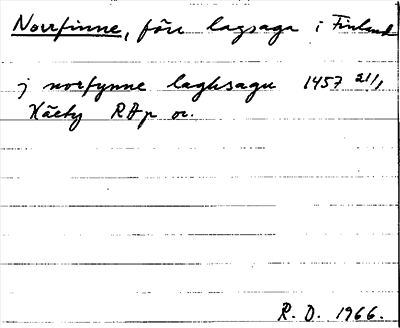 Norrfinne, före lagsaga i Finland
j norfynne laghsagu 1457 21/1
Käeby RAp or.
R. O. 1966.